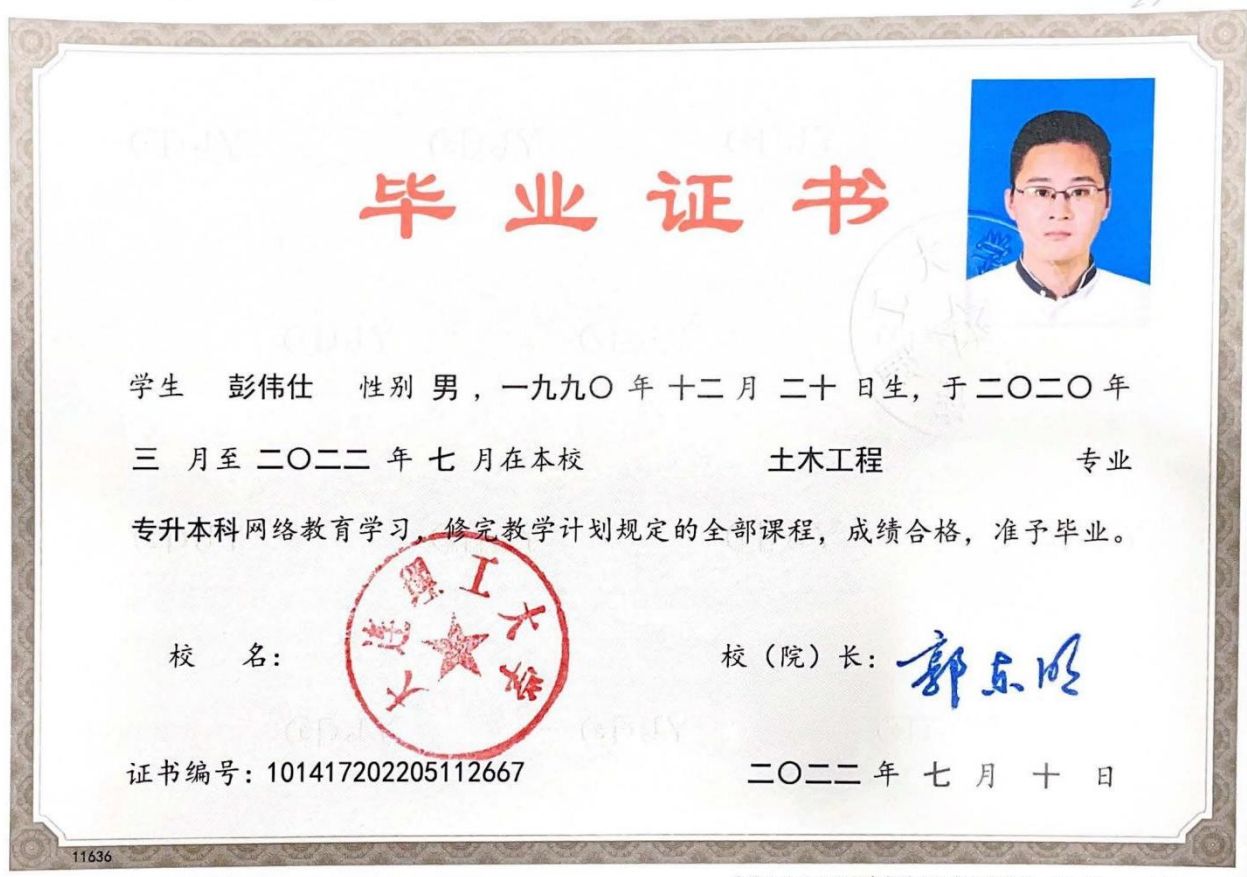 毕业证书
学生 彭伟仕 性别 男，一九九〇 年 十二 月 二十 日生，于 二〇二〇 年
三 月至 二〇二二 年 七 月在本校 土木工程 专业
专升本科网络教育学习，修完教学计划规定的全部课程，成绩合格，准予毕业。
大连理工大学
校 名：
校（院）长：郭东明
证书编号：101417202205112667
二〇二二 年 七 月 十 日
11636